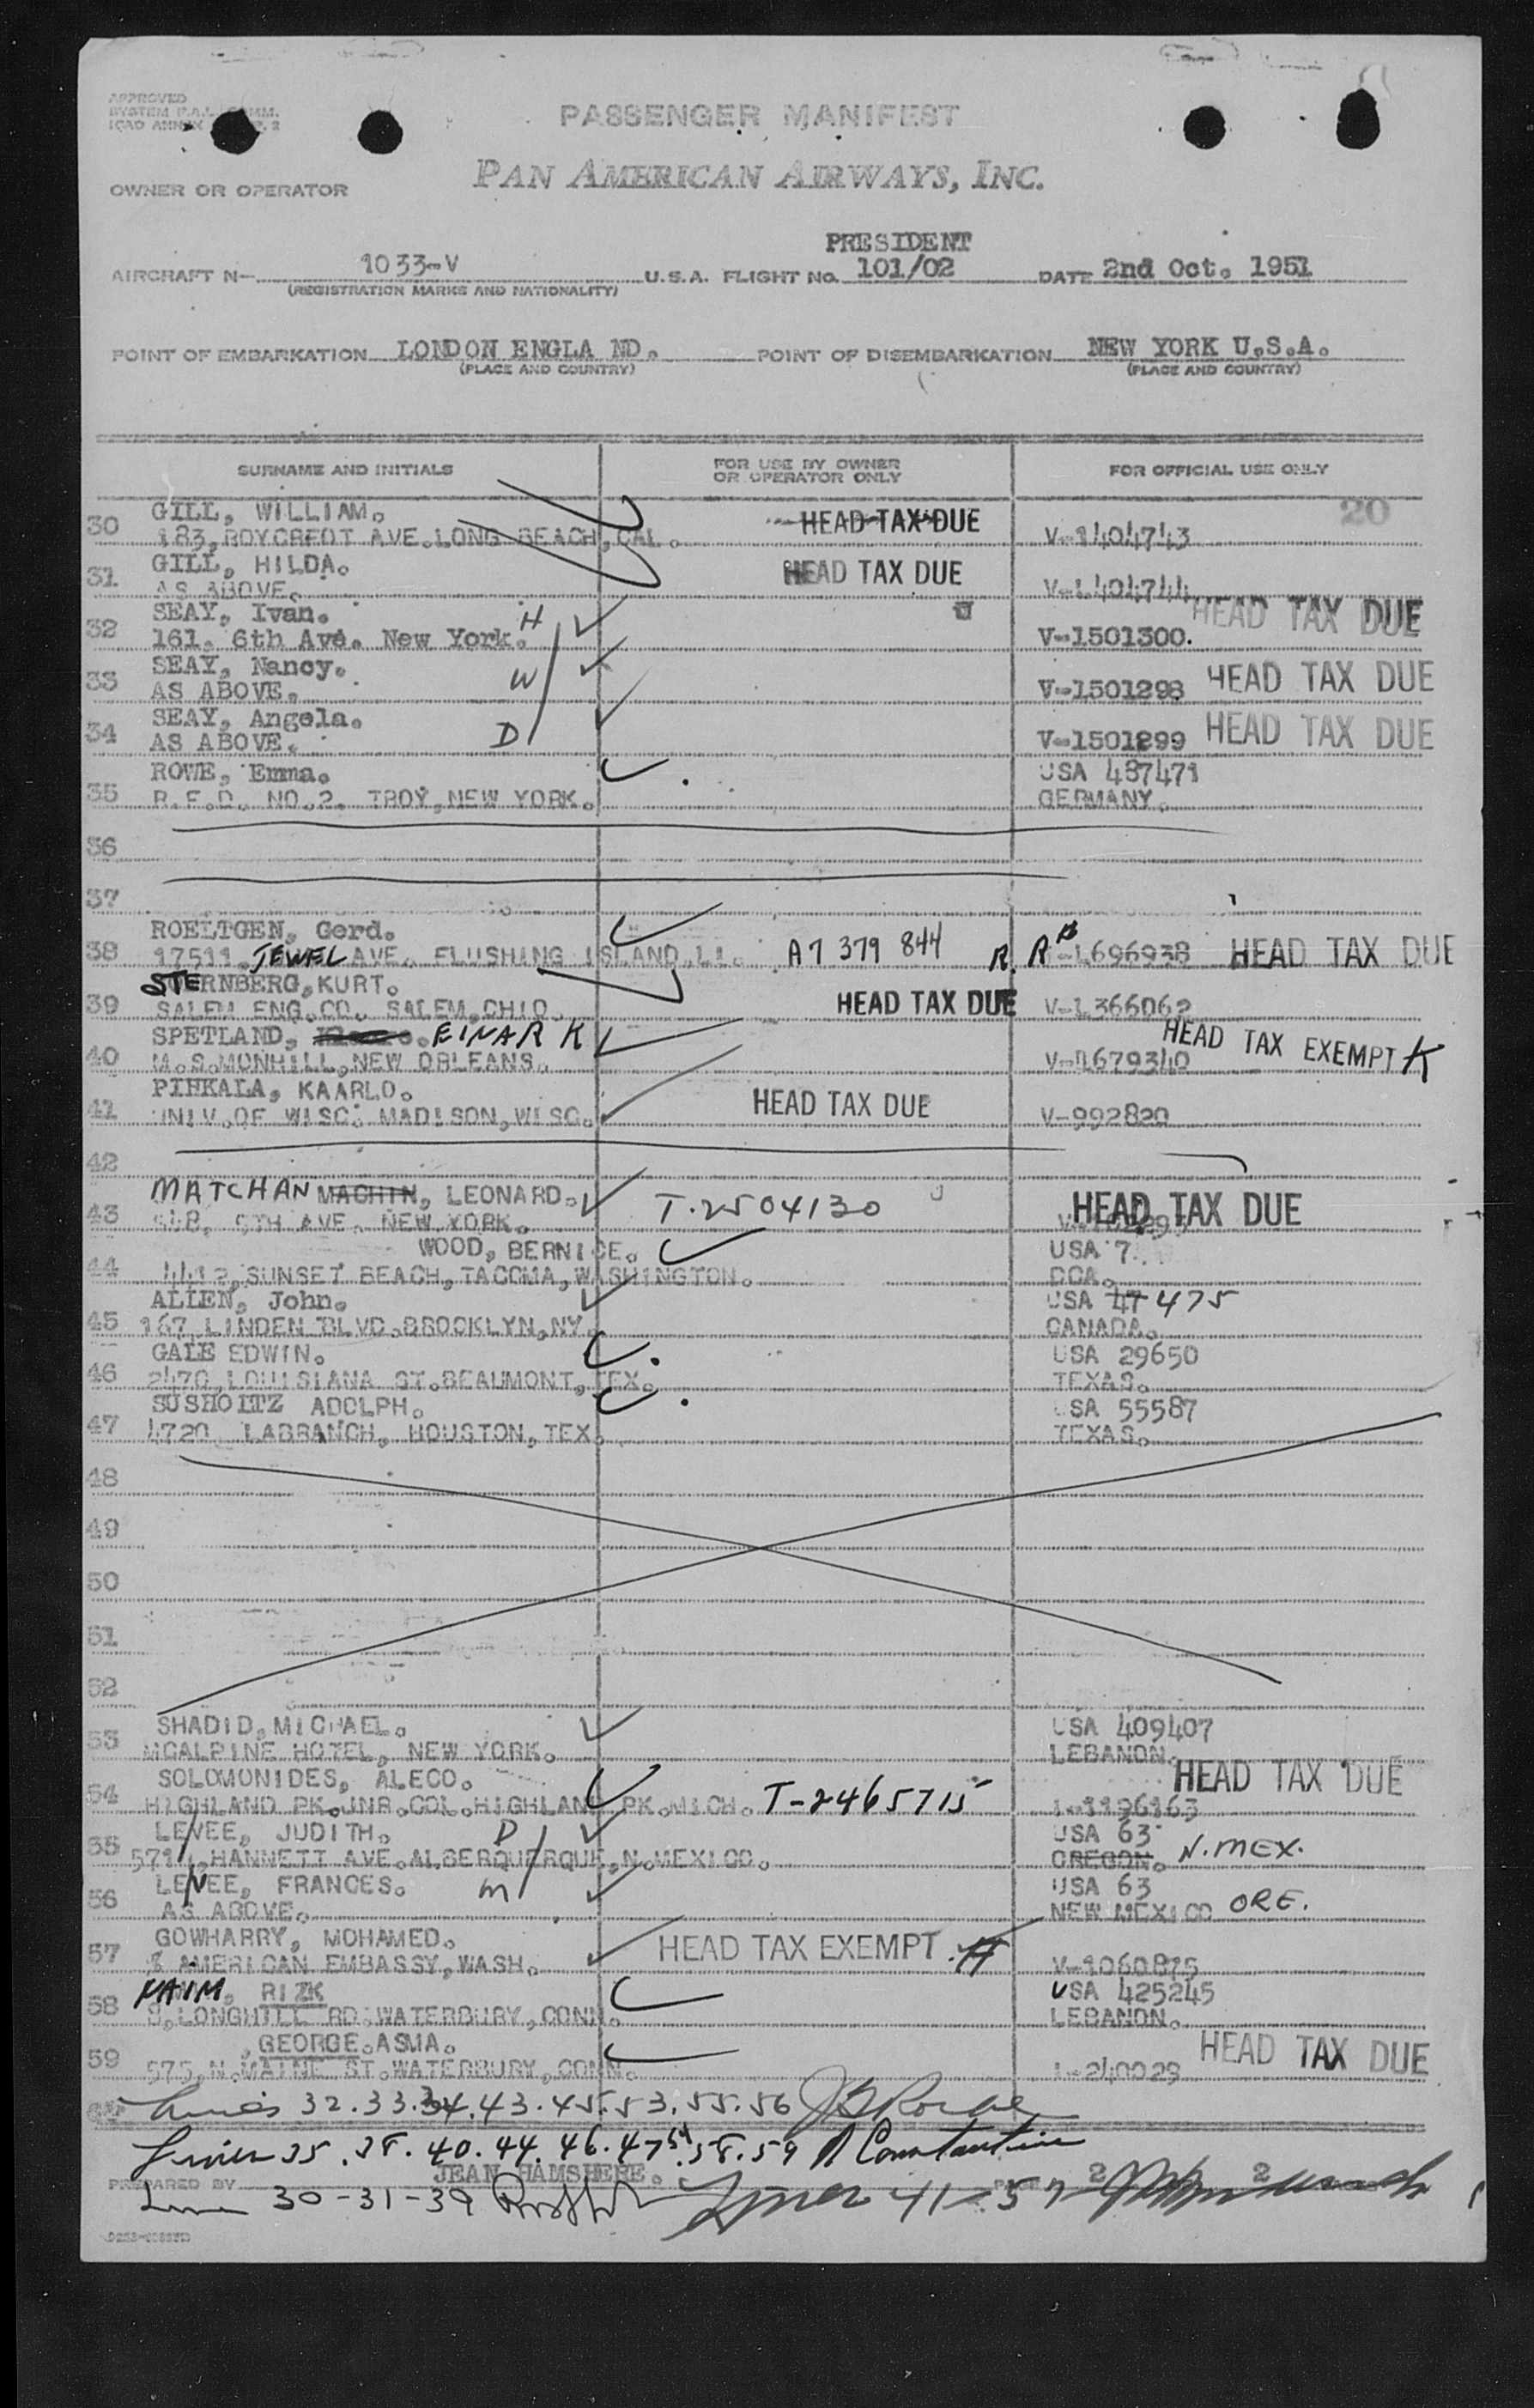 APPROVED
PASSENGER MANIFEST
OWNER OR OPERATOR
PAN AMERICAN AIRWAYS, INC.
PRESIDENT
AIRCRAFT N— 1033-V U.S.A. FLIGHT No. 101/02 DATE 2nd Oct. 1951
(REGISTRATION MARKS AND NATIONALITY)
POINT OF EMBARKATION LONDON ENGLA ND. POINT OF DISEMBARKATION NEW YORK U.S.A.
(PLACE AND COUNTRY) (PLACE AND COUNTRY)
SURNAME AND INITIALS FOR USE BY OWNER OR OPERATOR ONLY FOR OFFICIAL USE ONLY
20
30 GILL, WILLIAM. HEAD TAX DUE
183, ROYCREDT AVE.LONG BEACH, CAL. V-1404743
31 GILL, HILDA. HEAD TAX DUE
AS ABOVE. V-1404744
32 SEAY, Ivan. H HEAD TAX DUE
161. 6th Ave. New York. V-1501300.
33 SEAY, Nancy. W HEAD TAX DUE
AS ABOVE. V-1501298
34 SEAY, Angela. D HEAD TAX DUE
AS ABOVE. V-1501299
35 ROWE, Emma. USA 487471
R.F.D. NO.2. TROY, NEW YORK. GERMANY.
36
37
38 ROELTGEN, Gerd.
17511. JEWEL AVE. FLUSHING ISLAND, LI. A7 379 844 R. R -1696938 HEAD TAX DUE
39 STERNBERG, KURT. HEAD TAX DUE
SALEM ENG.CO. SALEM, OHIO. V-1366062
40 SPETLAND, EINAR K HEAD TAX EXEMPT K
M.S.MONHILL, NEW ORLEANS. V-1679340
41 PIHKALA, KAARLO. HEAD TAX DUE
UNIV.OF WISC: MADISON, WISC. V-992820
42
43 MATCHAN MACHIN, LEONARD. T-2504130 HEAD TAX DUE
5TH AVE. NEW YORK.
44 WOOD, BERNICE. USA 7.
4412, SUNSET BEACH, TACOMA, WASHINGTON. DCA.
45 ALLEN, John. USA 47 475
167, LINDEN BLVD.BROOKLYN, NY. CANADA.
46 GALE EDWIN. USA 29650
2470, LOUISIANA ST.BEAUMONT, TEX. TEXAS.
47 SUSHOLTZ ADOLPH. USA 55587
4720 LABRANCH, HOUSTON, TEX. TEXAS.
48
49
50
51
52
53 SHADID, MICHAEL. USA 409407
MCALPINE HOTEL, NEW YORK. LEBANON.
54 SOLOMONIDES, ALECO. HEAD TAX DUE
HIGHLAND PK.JNR.COL.HIGHLAND PK.MICH. T-2465715 1-1196163
55 LEVEE, JUDITH. D USA 63
HANNETT AVE.ALBERQUERQUE, N.MEXICO. OREGON. N.MEX.
56 LEVEE, FRANCES. M USA 63
AS ABOVE. NEW MEXICO ORE.
57 GOWHARRY, MOHAMED. HEAD TAX EXEMPT. H
% AMERICAN EMBASSY, WASH. V-1060875
58 NAIM, RIZK USA 425245
LONGHILL RD.WATERBURY, CONN. LEBANON.
59 , GEORGE.ASMA. HEAD TAX DUE
575, N.MAINE ST.WATERBURY, CONN. 1-240029
Lines 32.33.34.43.45.53.55.56
Lines 35.38.40.44.46.47 54.58.59 A Constantine
PREPARED BY JEAN HAMSHERE. 2 2
Line 30-31-39 Lines 41-57